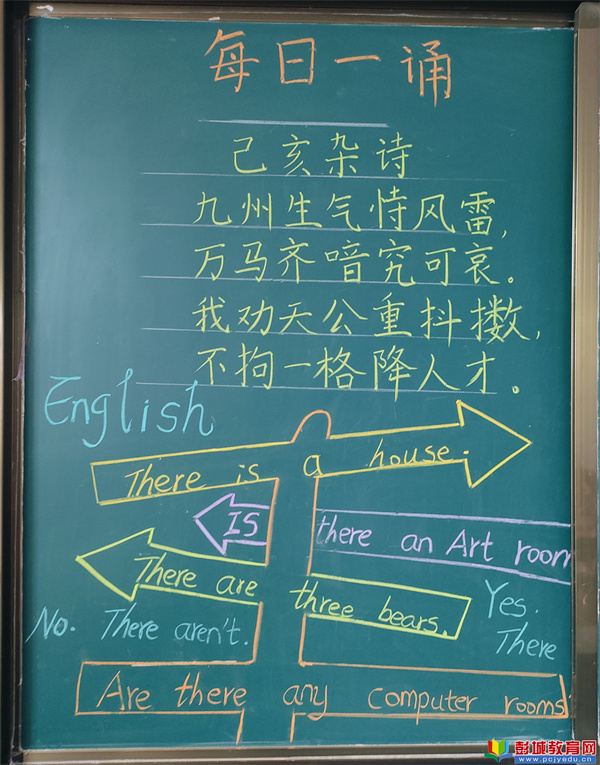 每日一诵
己亥杂诗
九州生气恃风雷,
万马齐喑究可哀。
我劝天公重抖擞,
不拘一格降人才。
English
There is a house.
IS there an Art room
There are three bears.
Yes.
There
No. There aren't.
Are there any computer rooms
彭城教育网
www.pcjyedu.cn